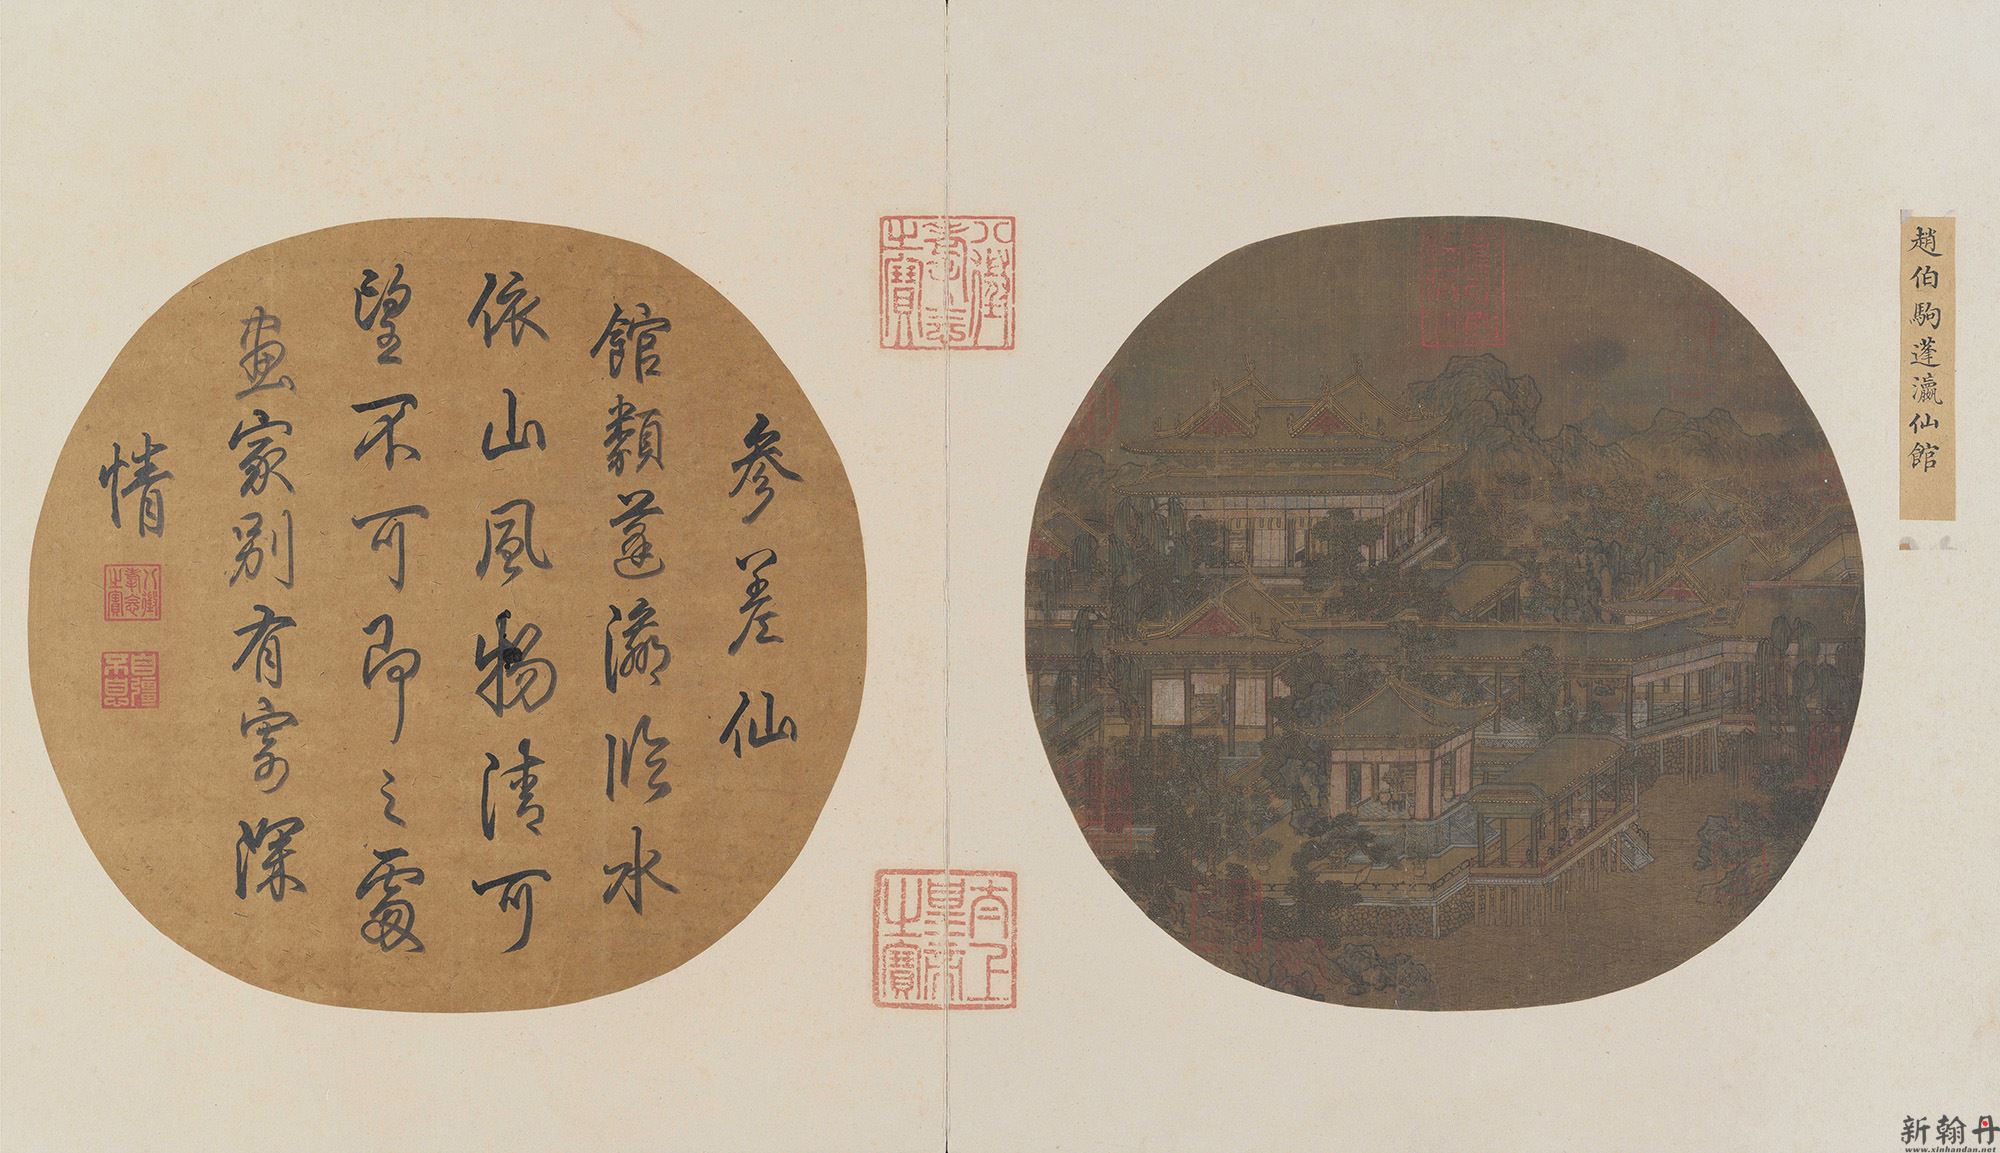 趙伯駒蓬瀛仙館
參差仙
館類蓬瀛臨水
依山風物清可
望不可即之處
畫家別有寄深
情
八徵耄念之寶
太上皇帝之寶
八徵耄念之寶
自彊不息
新翰丹
www.xinhandan.net